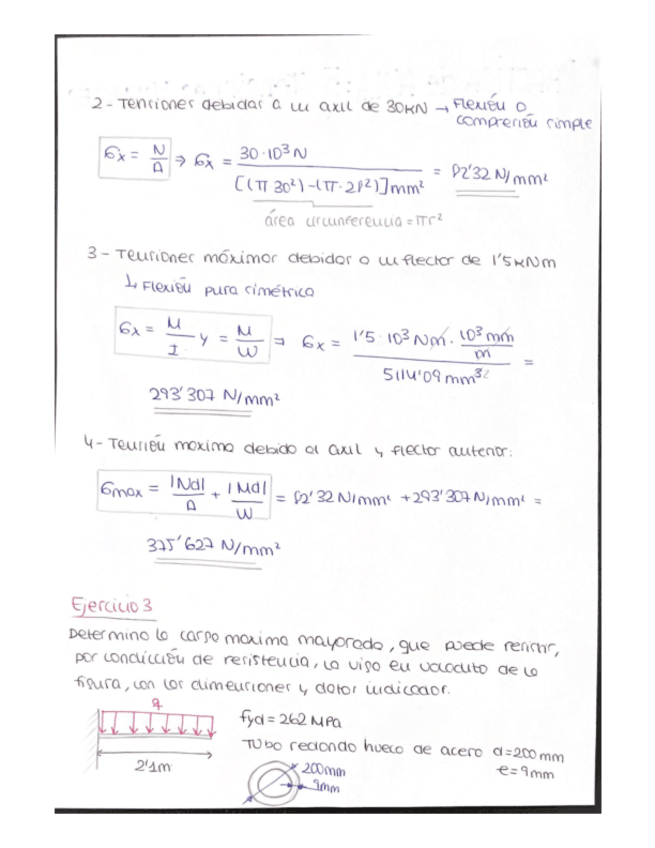 2 - Tensiones debidas a un axil de 30 KN → Flexión o
compresión simple
σx = N/A ⇒ σx = 30·10³ N / [(π 30²) - (π·28²)] mm² = 82'32 N/mm²
área circunferencia = πr²
3 - Tensiones máximas debidas a un flector de 1'5 KNm
↳ Flexión pura simétrica
σx = M/I y = M/W ⇒ σx = 1'5·10³ Nm · 10³ mm/m / 5114'09 mm³ =
293'307 N/mm²
4 - Tensión maxima debido al axil y flector anterior:
σmax = |Nd|/A + |Md|/W = 82'32 N/mm² + 293'307 N/mm² =
375'627 N/mm²
Ejercicio 3
Determina la carga maxima mayorada, que puede resistir,
por condicción de resistencia, la viga en voladizo de la
figura, con las dimensiones y datos indicados.
q
fyd = 262 MPa
Tubo redondo hueco de acero d=200 mm
e=9mm
2'1m
200mm
9mm